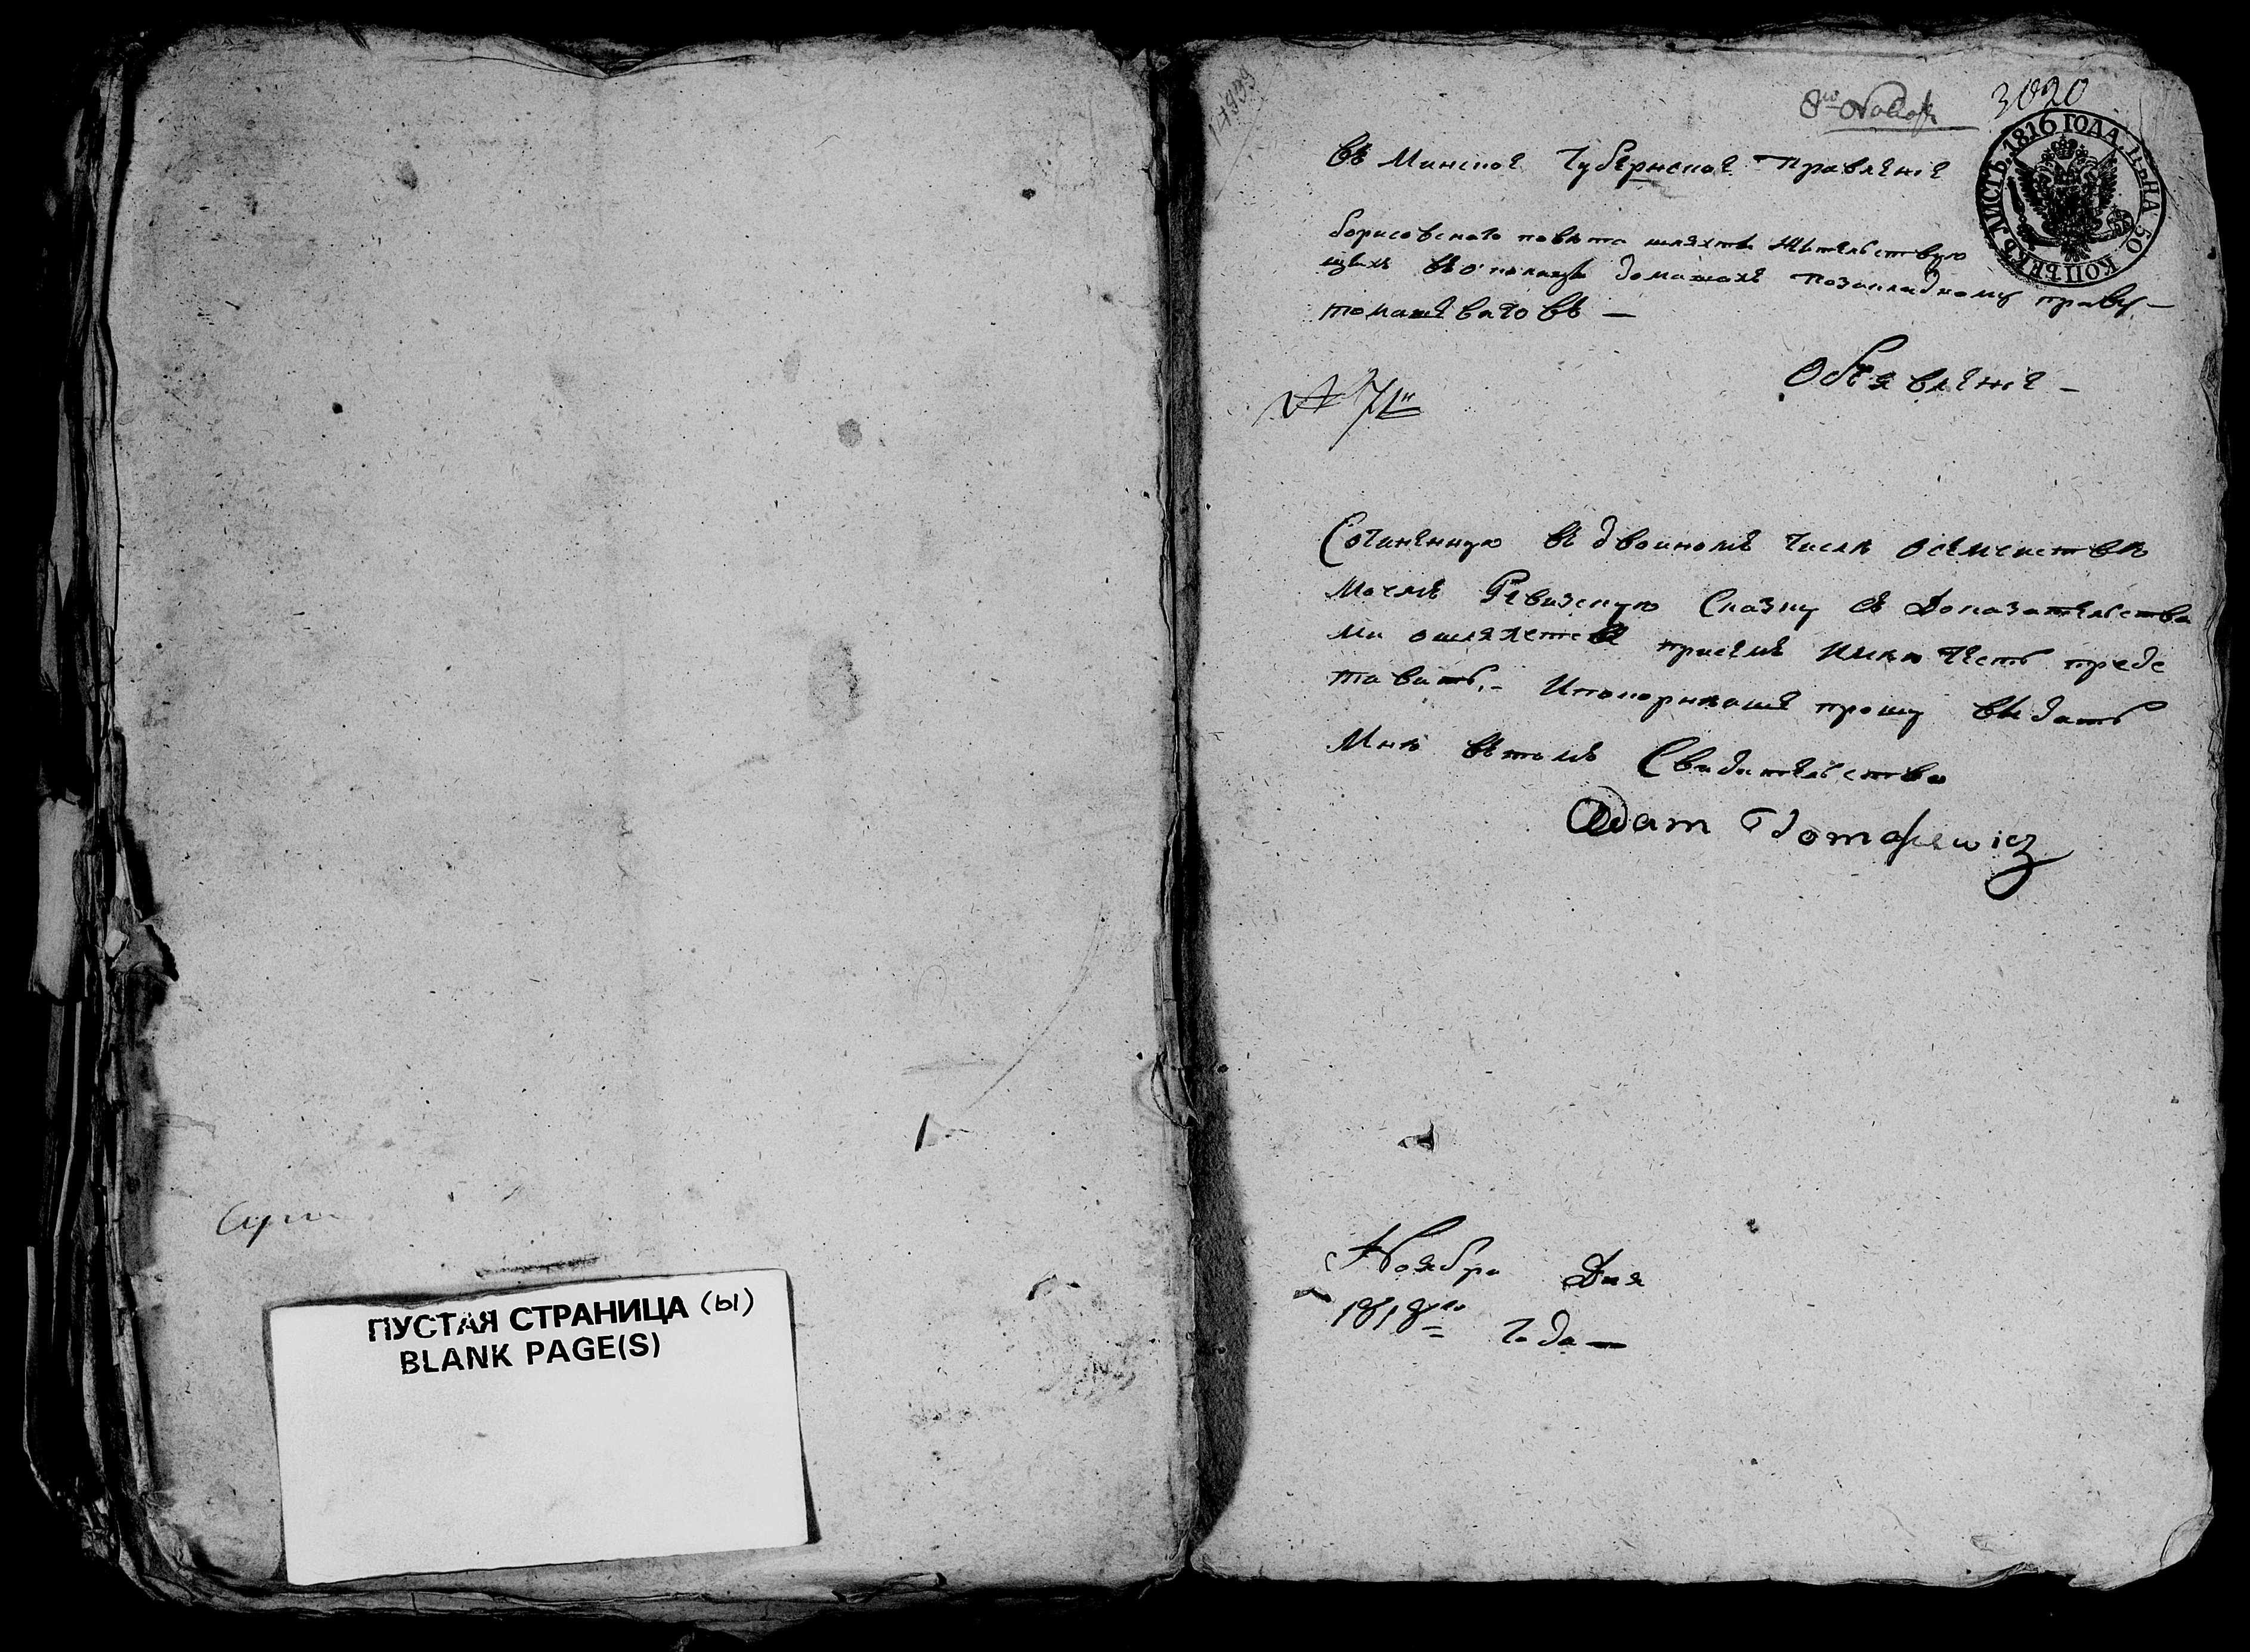 ПУСТАЯ СТРАНИЦА (ы)
BLANK PAGE(S)
3020
ЛИСТЪ. 1816 ГОДА. ЦѢНА 50 КОПѢЕКЪ
Въ Минское Губернское Правление
борисовского повѣта шляхты жительствую
щихъ въ домашохъ позакладному праву –
томашевичовъ —
Объявление –
Сочиненную въ двойномъ числѣ осемействѣ
моемъ Ревизскую Сказку съ Доказательства
ми ошляхетствѣ присемъ имѣю честь предс
тавить. – Ипокорнѣише прошу выдать
Мнѣ въ томъ Свидительство
Adam Tomaszewicz
Ноября Дня
1818го Года —